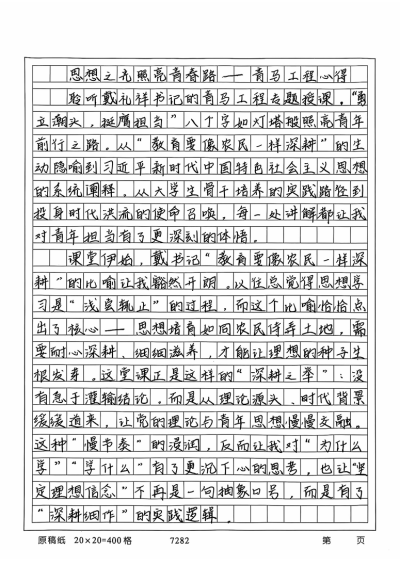 思想之光照亮青春路——青马工程心得
聆听戴礼祥书记的青马工程专题授课,“勇
立潮头,挺膺担当”八个字如灯塔般照亮青年
前行之路。从“教育要像农民一样深耕”的生
动隐喻到习近平新时代中国特色社会主义思想
的系统阐释,从大学生骨干培养的实践路径到
投身时代洪流的使命召唤,每一处讲解都让我
对青年担当有了更深刻的体悟。
课堂伊始,戴书记“教育要像农民一样深
耕”的比喻让我豁然开朗。以往总觉得思想学
习是“浅尝辄止”的过程,而这个比喻恰恰点
出了核心——思想培育如同农民侍弄土地,需
要耐心深耕、细细滋养,才能让理想的种子生
根发芽。这堂课正是这样的“深耕之举”:没
有急于灌输结论,而是从理论源头、时代背景
缓缓道来,让党的理论与青年思想慢慢交融。
这种“慢节奏”的浸润,反而让我对“为什么
学”“学什么”有了更沉下心的思考,也让“坚
定理想信念”不再是一句抽象口号,而是有了
“深耕细作”的实践逻辑。
原稿纸 20×20=400格 7282 第 页